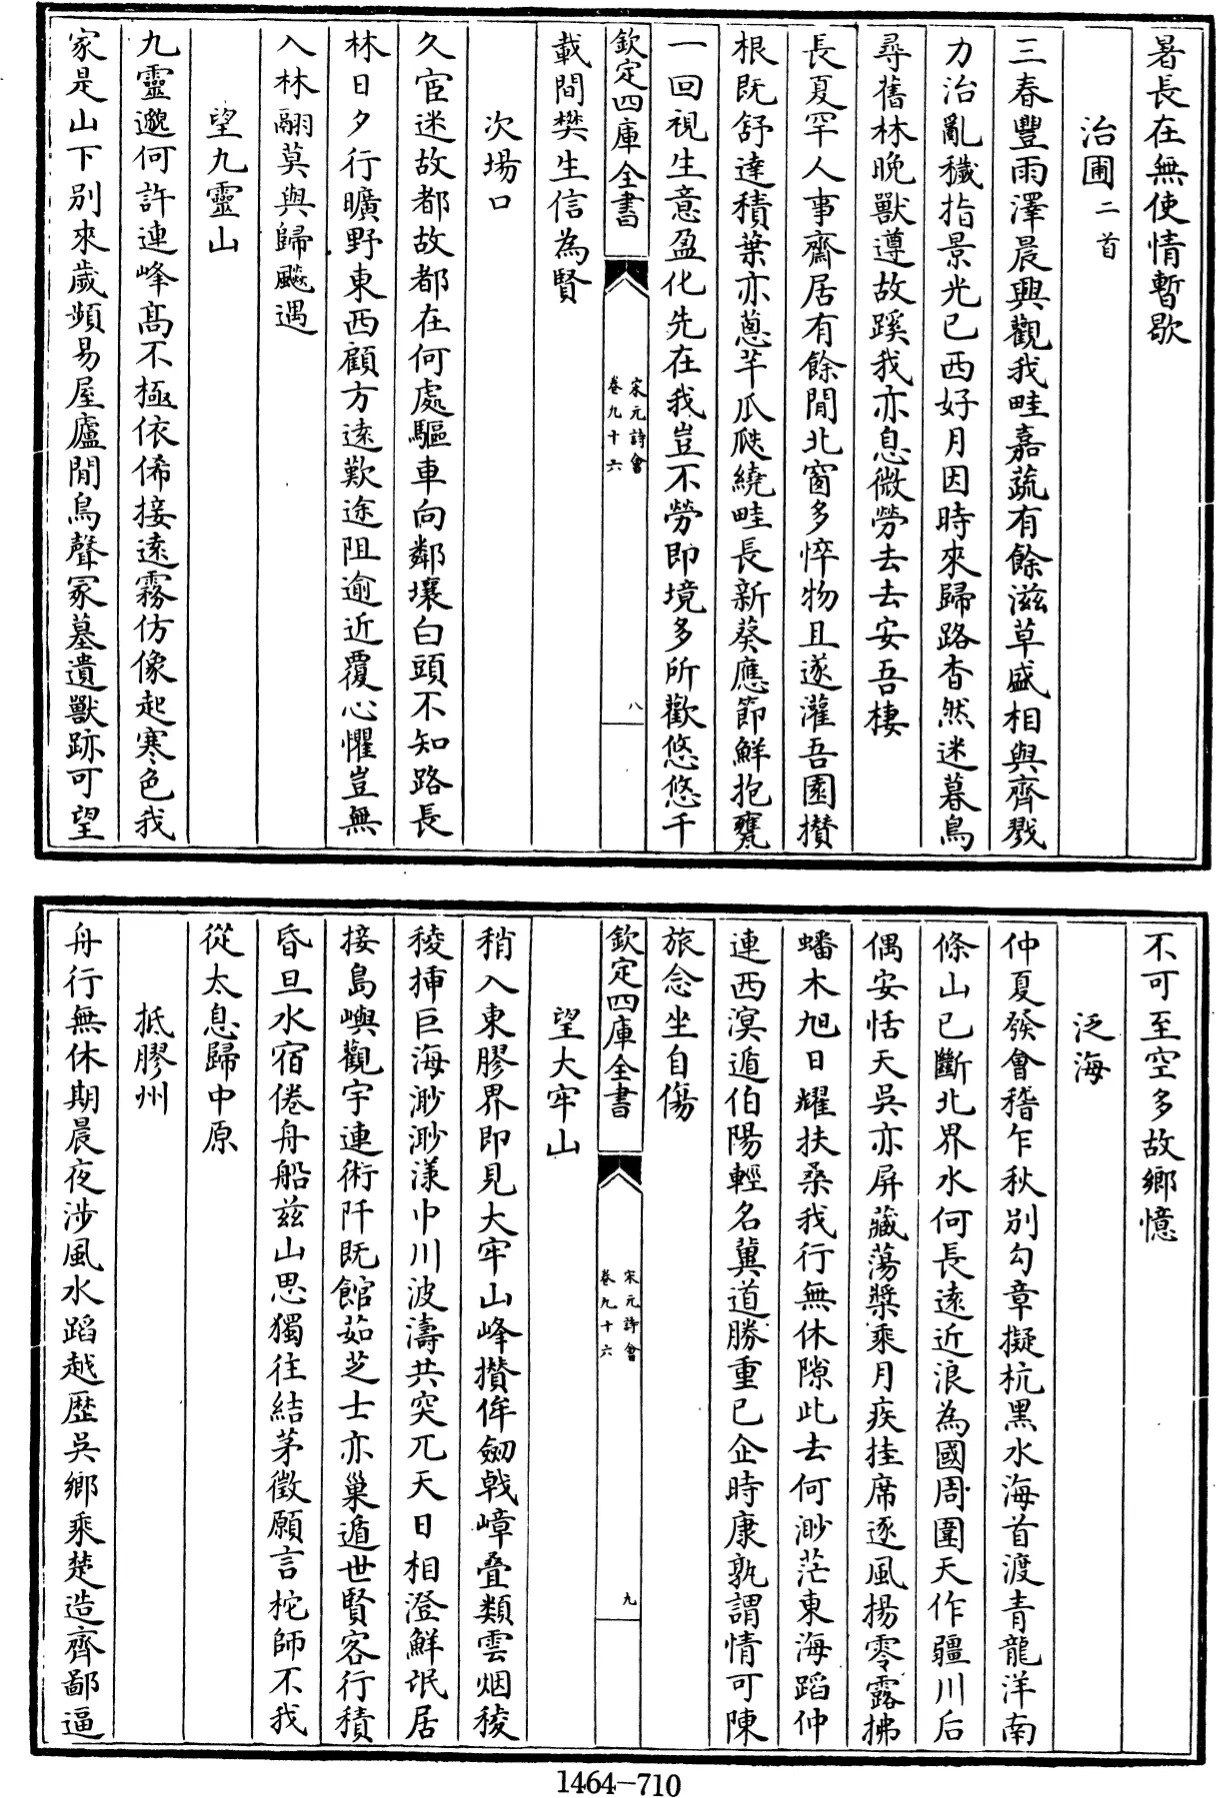 暑長在無使情暫歇
治圃二首
三春豐雨澤晨興觀我畦嘉蔬有餘滋草盛相與齊戮
力治亂穢指景光已西好月因時來歸路杳然迷暮鳥
尋舊林晩獸遵故蹊我亦息微勞去去安吾棲
長夏罕人事齋居有餘閒北窗多悴物且遂灌吾園攢
根既舒達積葉亦蔥芊瓜瓞繞畦長新葵應節鮮抱甕
一回視生意盈化先在我豈不勞即境多所歡悠悠千
欽定四庫全書
宋元詩會
卷九十六
八
載間樊生信為賢
次場口
久宦迷故都故都在何處驅車向鄰壤白頭不知路長
林日夕行曠野東西顧方遠歎途阻逾近覆心懼豈無
入林翮莫與歸飈遇
望九靈山
九靈邈何許連峰髙不極依俙接遠霧仿像起寒色我
家是山下別來歲頻易屋廬閒鳥聲冢墓遺獸跡可望
不可至空多故鄉憶
泛海
仲夏發會稽乍秋別勾章擬杭黑水海首渡青龍洋南
條山已斷北界水何長遠近浪為國周圍天作疆川后
偶安恬天吳亦屏藏蕩槳乘月疾挂席逐風揚零露拂
蟠木旭日耀扶桑我行無休隙此去何渺茫東海蹈仲
連西溟遁伯陽輕名冀道勝重已企時康孰謂情可陳
旅念坐自傷
欽定四庫全書
宋元詩會
卷九十六
九
望大牢山
稍入東膠界即見大牢山峰攢侔劒戟嶂疊類雲烟稜
稜揷巨海渺渺漾巾川波濤共突兀天日相澄鮮氓居
接島嶼觀宇連術阡既館茹芝士亦巢遁世賢客行積
昏旦水宿倦舟船兹山思獨往結茅徵願言柁師不我
從太息歸中原
抵膠州
舟行無休期晨夜涉風水蹈越歴吳鄉乘楚造齊鄙逼
1464-710